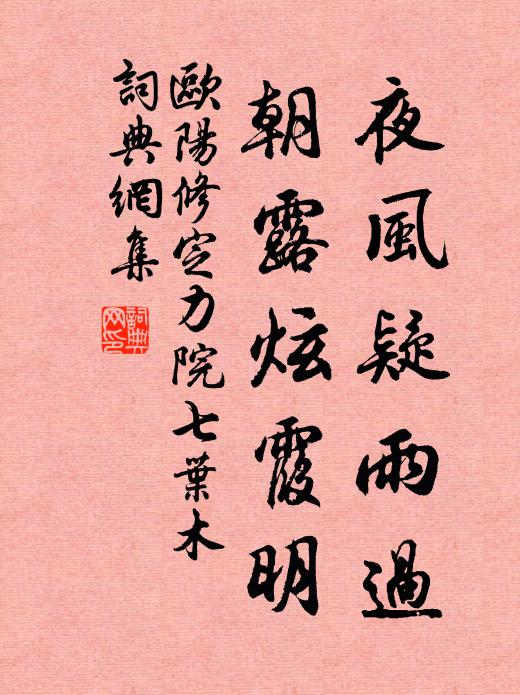 夜風疑雨過
朝露炫霞明
歐陽修定力院七葉木
詞典網集
詞典網印